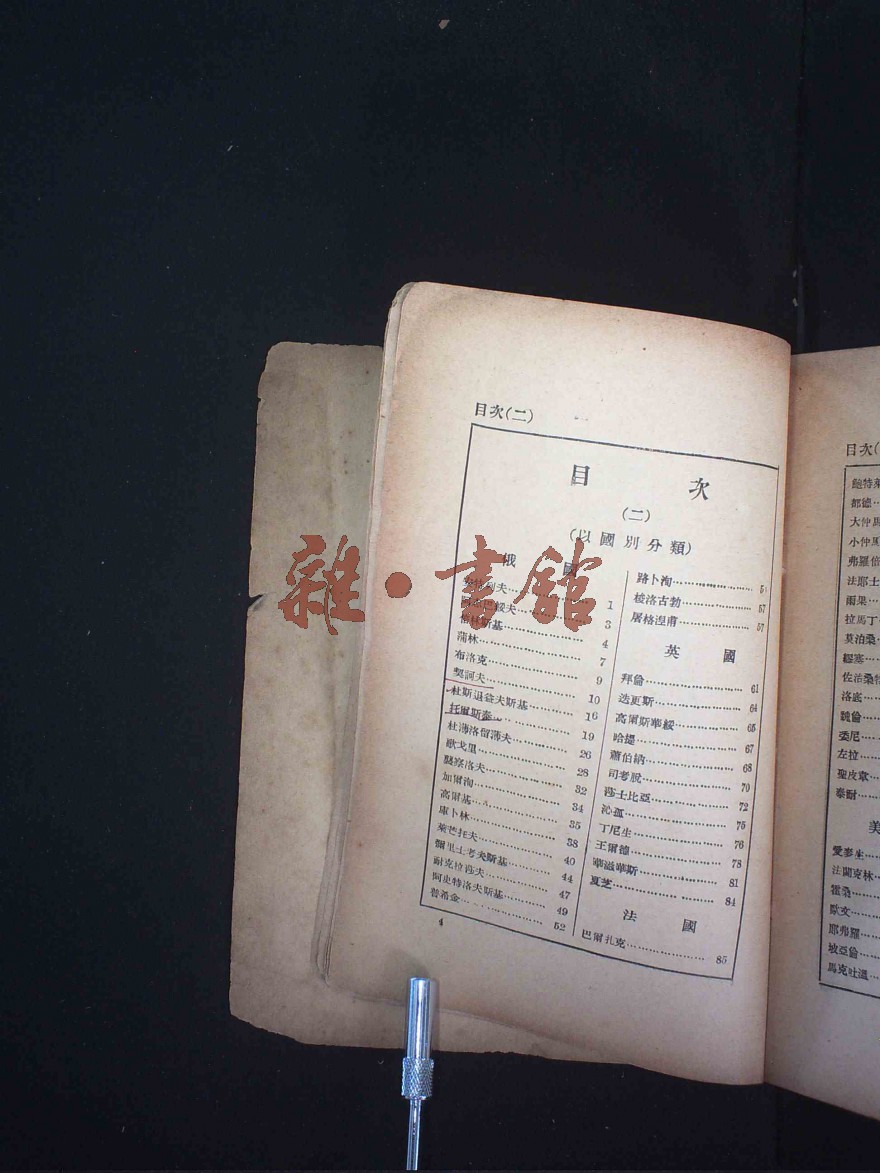 目次(二)
目 次
(二)
(以國別分類)
俄 國
安特列夫 1
阿志巴綏夫 3
倍林斯基 4
蒲林 7
布洛克 9
契訶夫 10
杜斯退益夫斯基 16
托爾斯泰 19
杜薄洛留薄夫 26
歌戈里 28
龔察洛夫 32
加爾洵 34
高爾基 35
庫卜林 38
萊芒托夫 40
彌里士考夫斯基 44
耐克拉莎夫 47
阿史特洛夫斯基 49
普希金 52
4
路卜洵 5
梭洛古勃 57
屠格涅甫 57
英 國
拜倫 61
迭更斯 64
高爾斯華綏 65
哈提 67
蕭伯納 68
司考脫 70
莎士比亞 72
沁孤 75
丁尼生 76
王爾德 78
華滋華斯 81
夏芝 84
法 國
巴爾扎克 85
目次(
鮑特萊
都德
大仲馬
小仲馬
弗羅倍
法耶士
雨果
拉馬丁
莫泊桑
繆塞
佐治桑
洛底
魏倫
委尼
左拉
聖皮韋
泰耐
美
愛麥生
法蘭克林
霍桑
歐文
耶弗羅
坡亞倫
馬克吐溫
雜·書館